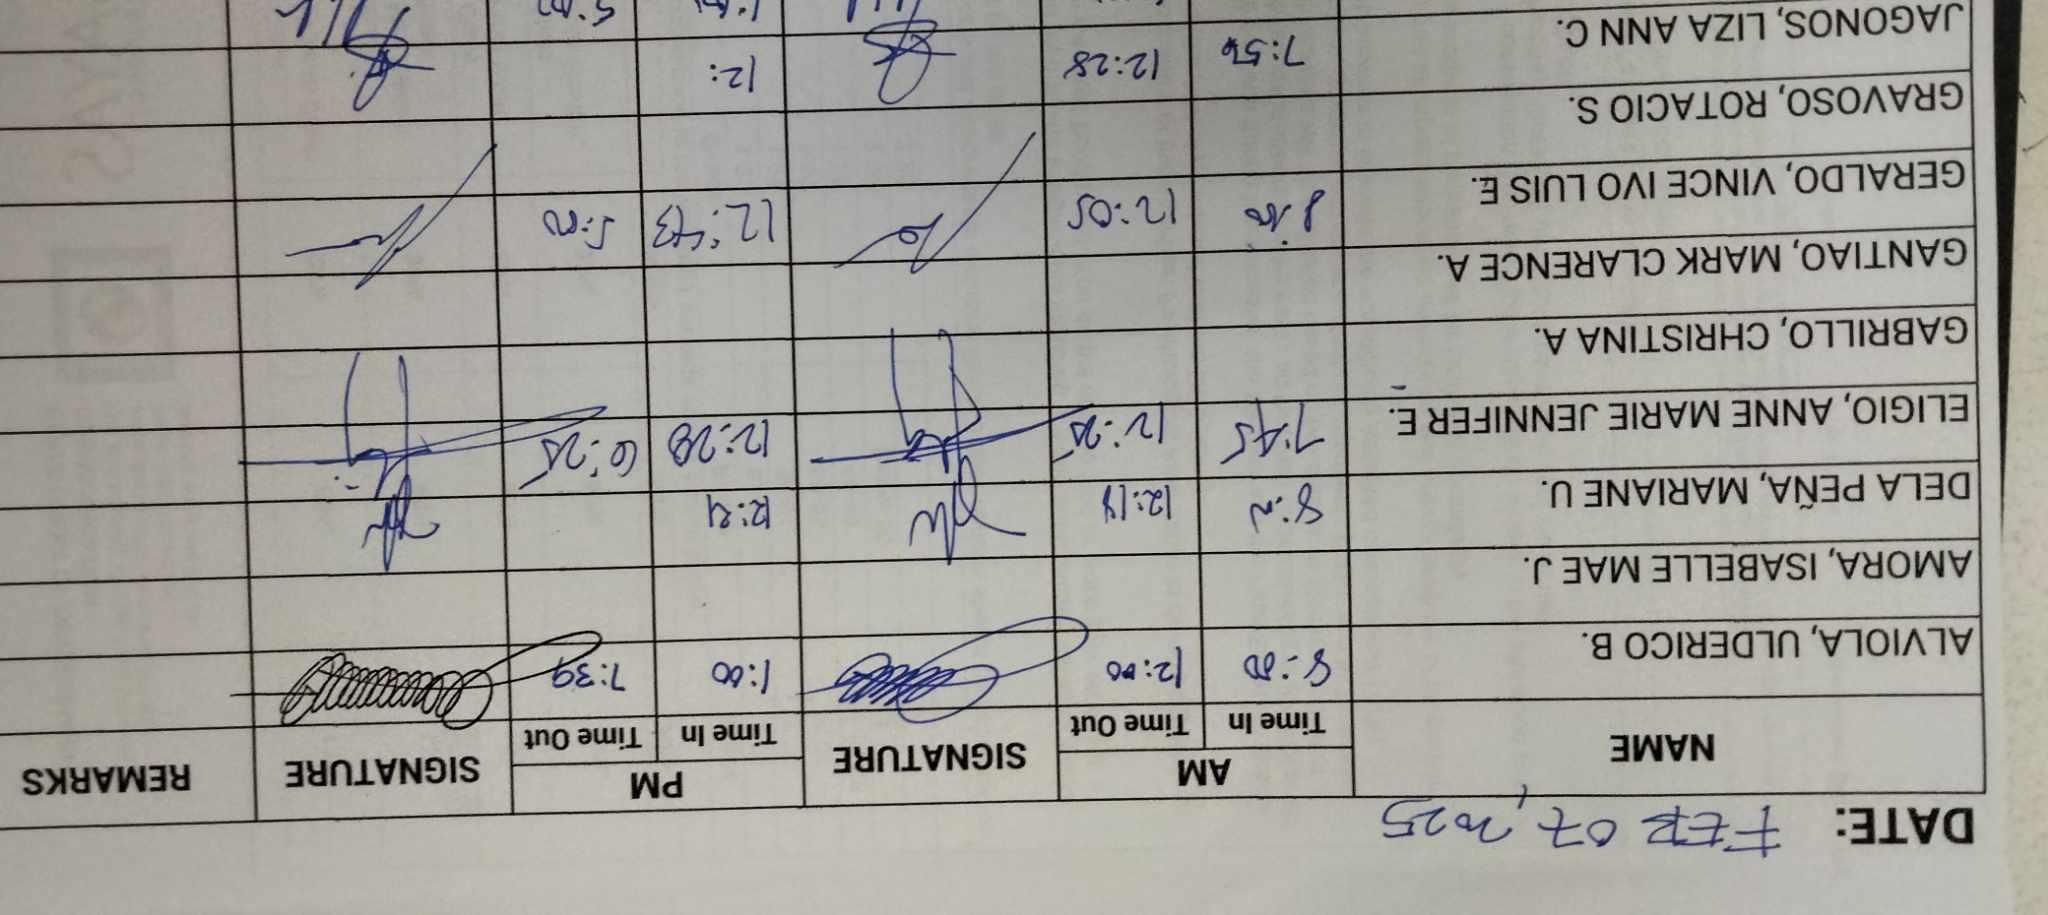 DATE: FEB 07, 2025
NAME AM SIGNATURE PM SIGNATURE REMARKS
Time In Time Out Time In Time Out
ALVIOLA, ULDERICO B. 8:00 12:00 1:00 7:39
AMORA, ISABELLE MAE J.
DELA PEÑA, MARIANE U. 12:21
ELIGIO, ANNE MARIE JENNIFER E. 7:45 12:25 12:28 6:25
GABRILLO, CHRISTINA A.
GANTIAO, MARK CLARENCE A.
GERALDO, VINCE IVO LUIS E. 8:00 12:05 12:43 5:00
GRAVOSO, ROTACIO S.
JAGONOS, LIZA ANN C. 7:56 12:28 12: